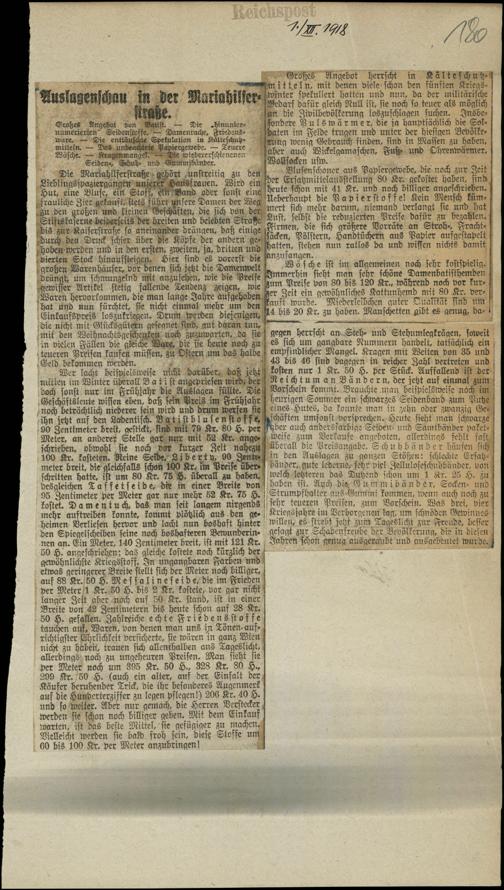 Reichspost
1./XII. 1918
180
Auslagenschau in der Mariahilfer-
straße.
Großes Angebot von Batist. — Die „hinunter-
numerierten“ Seidenstoffe. — Damentuche, Friedens-
ware. — Die enttäuschte Spekulation in Kälteschutz-
mitteln. — Das unbeachtete Papiergewebe. — Teuere
Wäsche. — Kragenmangel. — Die wiedererschienenen
Seiden-, Schuh- und Gummibänder.
Die Mariahilferstraße gehört unstreitig zu den
Lieblingsspaziergängen unserer Hausfrauen. Wird ein
Hut, eine Bluse, ein Stoff, ein Band oder sonst eine
frauliche Zier gekauft, stets führt unsere Damen der Weg
zu den großen und kleinen Geschäften, die sich von der
Stiftskaserne beiderseits der breiten und belebten Straße
bis zur Kaiserstraße so aneinander drängen, daß einige
durch den Druck schier über die Köpfe der andern ge-
hoben werden und in den ersten, zweiten, ja, dritten und
vierten Stock hinaufsteigen. Hier sind es vorerst die
großen Warenhäuser, vor denen sich jetzt die Damenwelt
drängt, um schmunzelnd mit anzusehen, wie die Preise
gewisser Artikel stetig fallende Tendenz zeigen, wie
Waren hervorkommen, die man lange Jahre aufgehoben
hat und nun fürchtet, sie nicht einmal mehr um den
Einkaufspreis loszukriegen. Drum werden diejenigen,
die nicht mit Glücksgütern gesegnet sind, gut daran tun,
mit den Weihnachtsgeschenken noch zuzuwarten, da sie
in vielen Fällen die gleiche Ware, die sie heute noch zu
teueren Preisen kaufen müssen, zu Ostern um das halbe
Geld bekommen werden.
Wer lacht beispielsweise nicht darüber, daß jetzt
mitten im Winter überall Batist angepriesen wird, der
doch sonst nur im Frühjahr die Auslagen füllte. Die
Geschäftsleute wissen eben, daß sein Preis im Frühjahr
noch beträchtlich niederer sein wird und drum werfen sie
ihn jetzt auf den Ladentisch. Batistblusenstoffe,
90 Zentimeter breit, sind mit 79 Kr. 80 H. per
Meter, an anderer Stelle gar nur mit 52 Kr. ange-
schrieben, obwohl sie noch vor kurzer Zeit nahezu
100 Kr. kosteten. Reine Seide, Liberty, 90 Zenti-
meter breit, die gleichfalls schon 100 Kr. im Preise über-
schritten hatte, ist um 80 Kr. 75 H. überall zu haben,
desgleichen Taffetseide, die in einer Breite von
95 Zentimeter per Meter gar nur mehr 52 Kr. 75 H.
kostet. Damentuch, das man seit langem nirgends
mehr auftreiben konnte, kommt plötzlich aus den ge-
heimen Verliesen hervor und lacht nun boshaft hinter
den Spiegelscheiben seine noch boshafteren Bewunderin-
nen an. Ein Meter, 140 Zentimeter breit, ist mit 121 Kr.
50 H. angeschrieben; das gleiche kostete noch kürzlich der
gewöhnlichste Kriegsstoff. In ungangbaren Farben und
etwas geringerer Breite stellt sich der Meter noch billiger,
auf 88 Kr. 50 H. Messalineseide, die im Frieden
per Meter 1 Kr. 50 H. bis 2 Kr. kostete, vor gar nicht
langer Zeit aber noch auf 50 Kr. stand, ist in einer
Breite von 42 Zentimetern bis heute schon auf 28 Kr.
50 H. gefallen. Zahlreiche echte Friedensstoffe
tauchen auf, Waren, von denen man uns in Tönen auf-
richtigster Ehrlichkeit versicherte, sie wären in ganz Wien
nicht zu haben, trauen sich allenthalben ans Tageslicht,
allerdings noch zu ungeheuren Preisen. Man sieht sie
per Meter noch um 395 Kr. 50 H., 328 Kr. 80 H.,
299 Kr. 50 H. (auch ein alter, auf der Einfalt der
Käufer beruhender Trick, die ihr besonderes Augenmerk
auf die Hunderterziffer zu legen pflegen!) 206 Kr. 40 H.
und so weiter. Aber nur gemach, die Herren Verstecker
werden sie schon noch billiger geben. Mit dem Einkauf
warten, ist das beste Mittel, sie gefügiger zu machen.
Vielleicht werden sie bald froh sein, diese Stoffe um
60 bis 100 Kr. per Meter anzubringen!
Großes Angebot herrscht in Kälteschutz-
mitteln, mit denen viele schon den fünften Kriegs-
winter spekuliert hatten und nun, da der militärische
Bedarf dafür gleich Null ist, sie noch so teuer als möglich
an die Zivilbevölkerung loszuschlagen suchen. Insbe-
sondere Pulswärmer, die ja hauptsächlich die Sol-
daten im Felde trugen und unter der hiesigen Bevölke-
rung wenig Gebrauch finden, sind in Massen zu haben,
aber auch Wickelgamaschen, Fuß- und Ohrenwärmer,
Wollsocken usw.
Blusenschoner aus Papiergewebe, die noch zur Zeit
der Ersatzmittelausstellung 80 Kr. gekostet haben, sind
heute schon mit 41 Kr. und noch billiger angeschrieben.
Ueberhaupt die Papierstoffe! Kein Mensch küm-
mert sich mehr darum, niemand verlangt sie und hat
Lust, selbst die reduzierten Preise dafür zu bezahlen.
Firmen, die sich größere Vorräte an Stroh-, Fracht-
säcken, Pölstern, Handtüchern aus Papier aufgestapelt
hatten, stehen nun ratlos da und wissen nichts damit
anzufangen.
Wäsche ist im allgemeinen noch sehr kostspielig.
Immerhin sieht man sehr schöne Damenbatisthemden
zum Preise von 80 bis 120 Kr., während noch vor kur-
zer Zeit ein gewöhnliches Kattunhemd mit 80 Kr. ver-
kauft wurde. Miederleibchen guter Qualität sind um
14 bis 20 Kr. zu haben. Manschetten gibt es genug, da-
gegen herrscht an Steh- und Stehumlegkrägen, soweit
es sich um gangbare Nummern handelt, tatsächlich ein
empfindlicher Mangel. Kragen mit Weiten von 35 und
43 bis 46 sind dagegen in reicher Zahl vertreten und
kosten nur 1 Kr. 50 H. per Stück. Auffallend ist der
Reichtum an Bändern, der jetzt auf einmal zum
Vorschein kommt. Brauchte man beispielsweise noch im
heurigen Sommer ein schwarzes Seidenband zum Putze
eines Hutes, da konnte man in zehn oder zwanzig Ge-
schäften umsonst vorsprechen. Heute sieht man schwarze,
aber auch andersfarbige Seiden- und Samtbänder paket-
weise zum Verkaufe angeboten, allerdings fehlt fast
überall die Preisangabe. Schuhbänder häufen sich
in den Auslagen zu ganzen Stößen; schlechte Ersatz-
bänder, gute lederne, sehr viel Zelluloseschuhbänder, von
welch letzteren das Dutzend schon um 1 Kr. 25 H. zu
haben ist. Auch die Gummibänder, Socken- und
Strumpfhalter aus Gummi kommen, wenn auch noch zu
sehr teueren Preisen, zum Vorschein. Was drei, vier
Kriegsjahre im Verborgenen lag, um schnöden Gewinnes
willen, es strebt jetzt zum Tageslicht zur Freude, besser
gesagt zur Schadenfreude der Bevölkerung, die in diesen
Jahren schon genug ausgeraubt und ausgebeutet wurde.